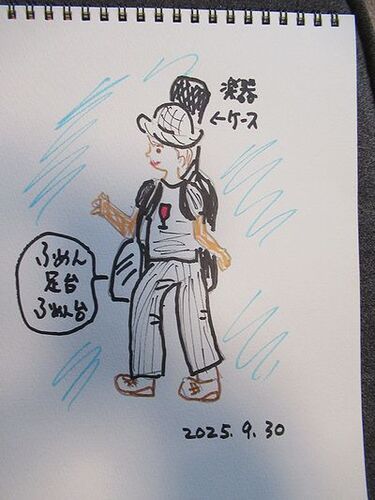 楽器
←ケース
ふめん
足台
ふめん台
2025.9.30